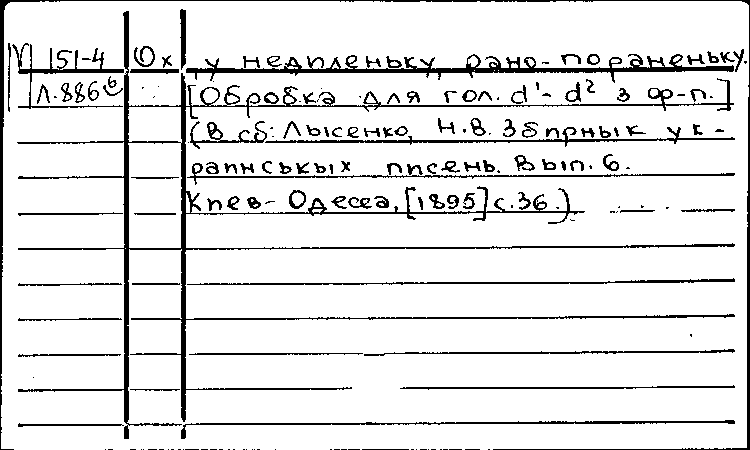 М 151-4 Ох, у недиленьку, рано-пораненьку.
Л.886б [Обробка для гол. d¹- d² з ф-п.]
(В сб: Лысенко, Н.В. Збирнык ук-
раинськых писень. Вып. 6.
Киев-Одесса, [1895] с.36.)